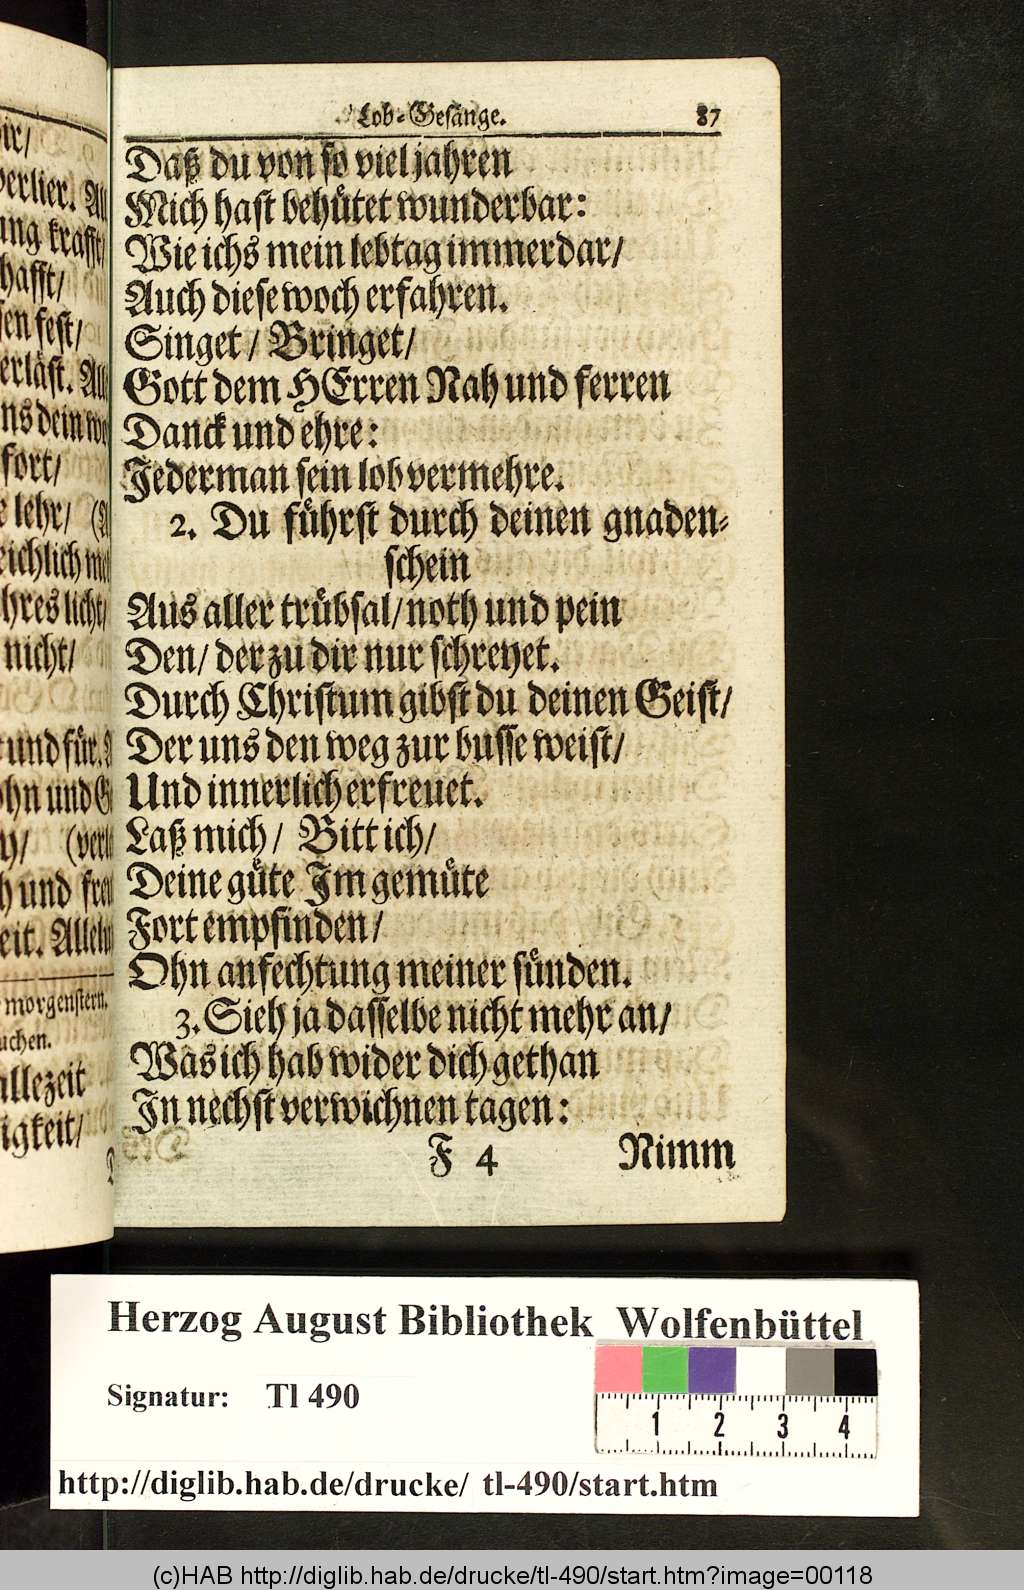 Lob-Gesänge. 87
Daß du von so viel jahren
Mich hast behütet wunderbar:
Wie ichs mein lebtag immerdar/
Auch diese woch erfahren.
Singet/ Bringet/
Gott dem HErren Nah und ferren
Danck und ehre:
Jederman sein lob vermehre.
2. Du führst durch deinen gnaden-
schein
Aus aller trübsal/ noth und pein
Den/ der zu dir nur schreyet.
Durch Christum gibst du deinen Geist/
Der uns den weg zur busse weist/
Und innerlich erfreuet.
Laß mich/ Bitt ich/
Deine güte Im gemüte
Fort empfinden/
Ohn anfechtung meiner sünden.
3. Sieh ja dasselbe nicht mehr an/
Was ich hab wider dich gethan
In nechst verwichnen tagen:
F 4 Nimm
verlier. All
krafft/
fest/
dein
fort/
lehr/
licht/
nicht/
und für.
und
und
Alle
morgenstern.
allezeit
Herzog August Bibliothek Wolfenbüttel
Signatur: Tl 490
1 2 3 4
http://diglib.hab.de/drucke/ tl-490/start.htm
(c)HAB http://diglib.hab.de/drucke/tl-490/start.htm?image=00118